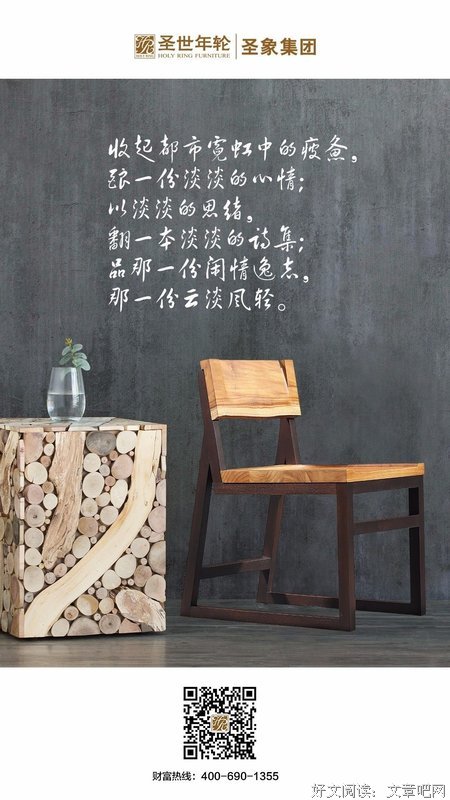 圣世年轮 圣象集团
HOLY RING FURNITURE
收起都市霓虹中的疲惫，
酿一份淡淡的心情；
以淡淡的思绪，
翻一本淡淡的诗集；
品那一份闲情逸志，
那一份云淡风轻。
财富热线：400-690-1355
好文阅读：文章吧网